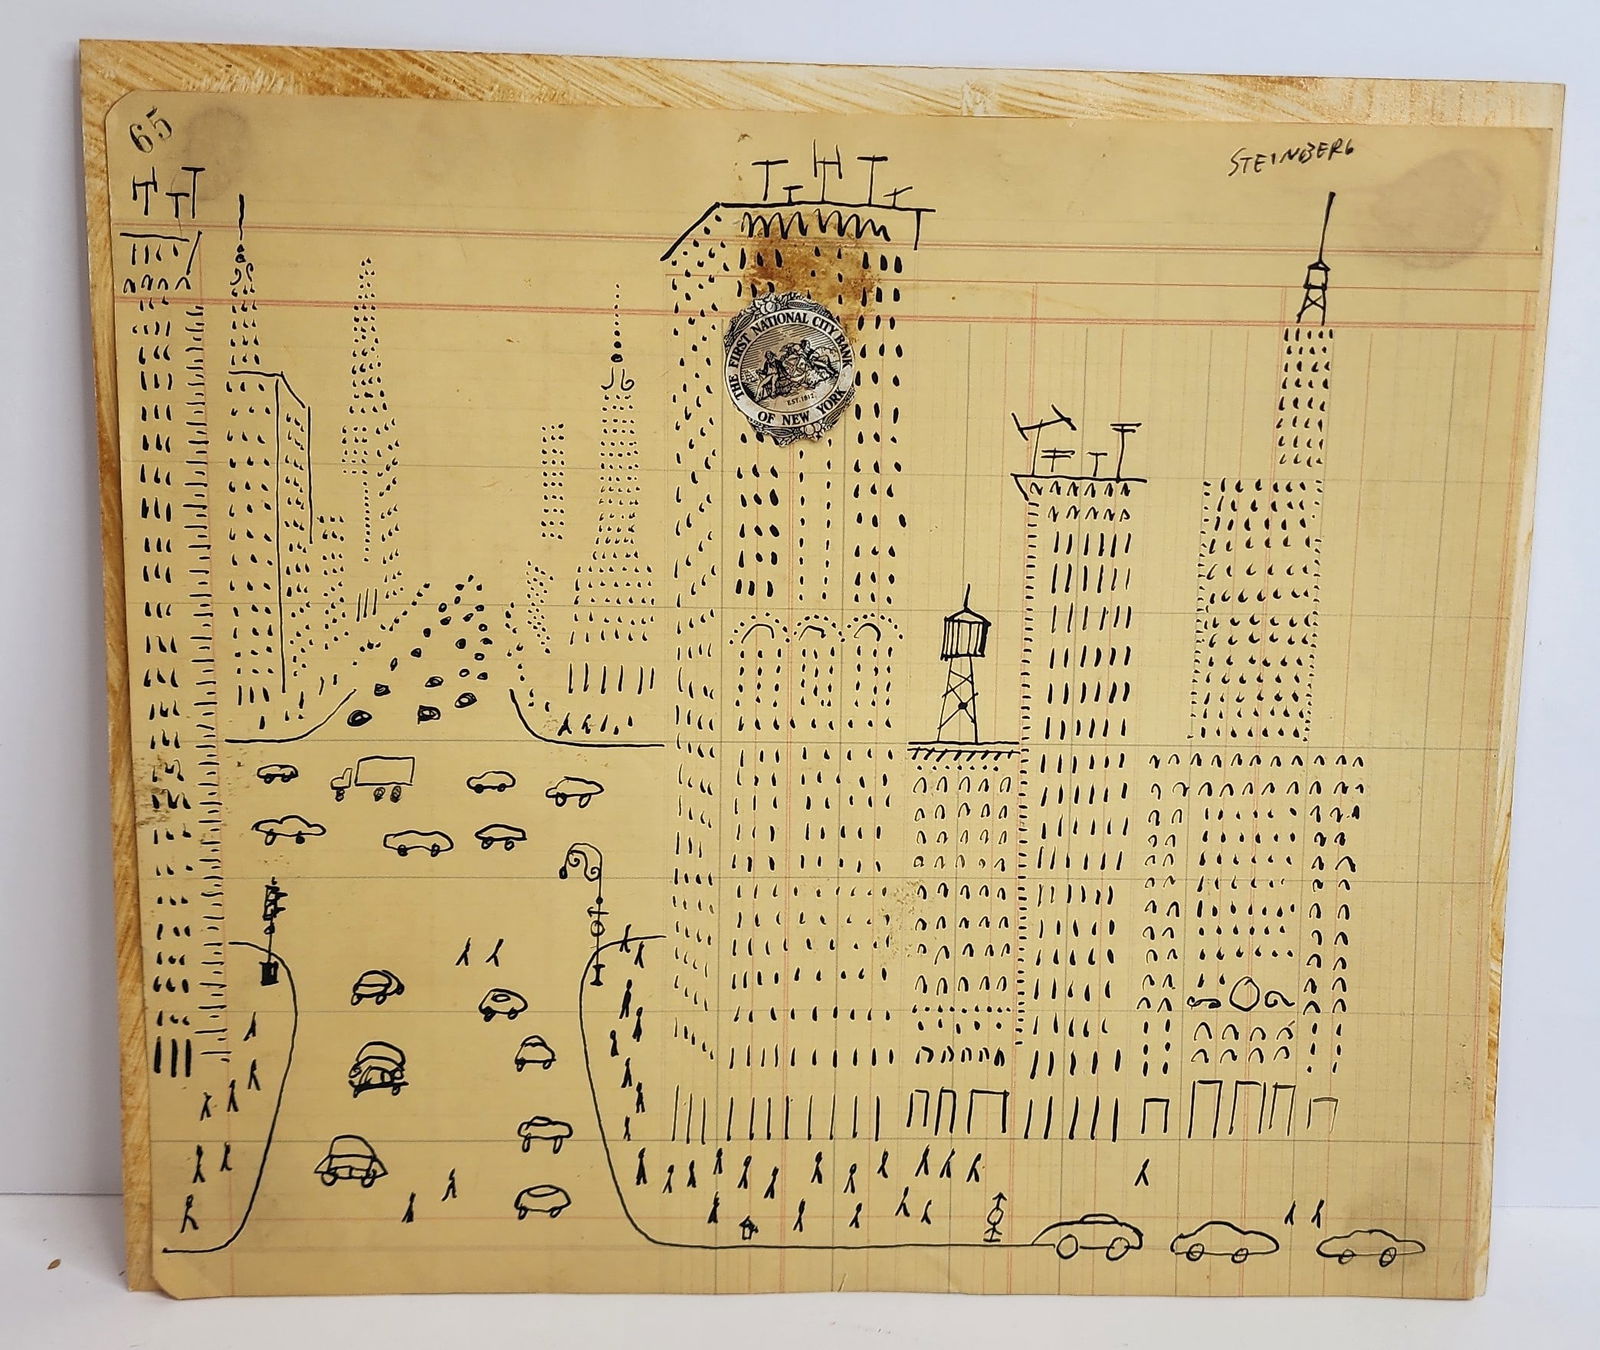 65
STEINBERG
THE FIRST NATIONAL CITY BANK
EST. 1812
OF NEW YORK